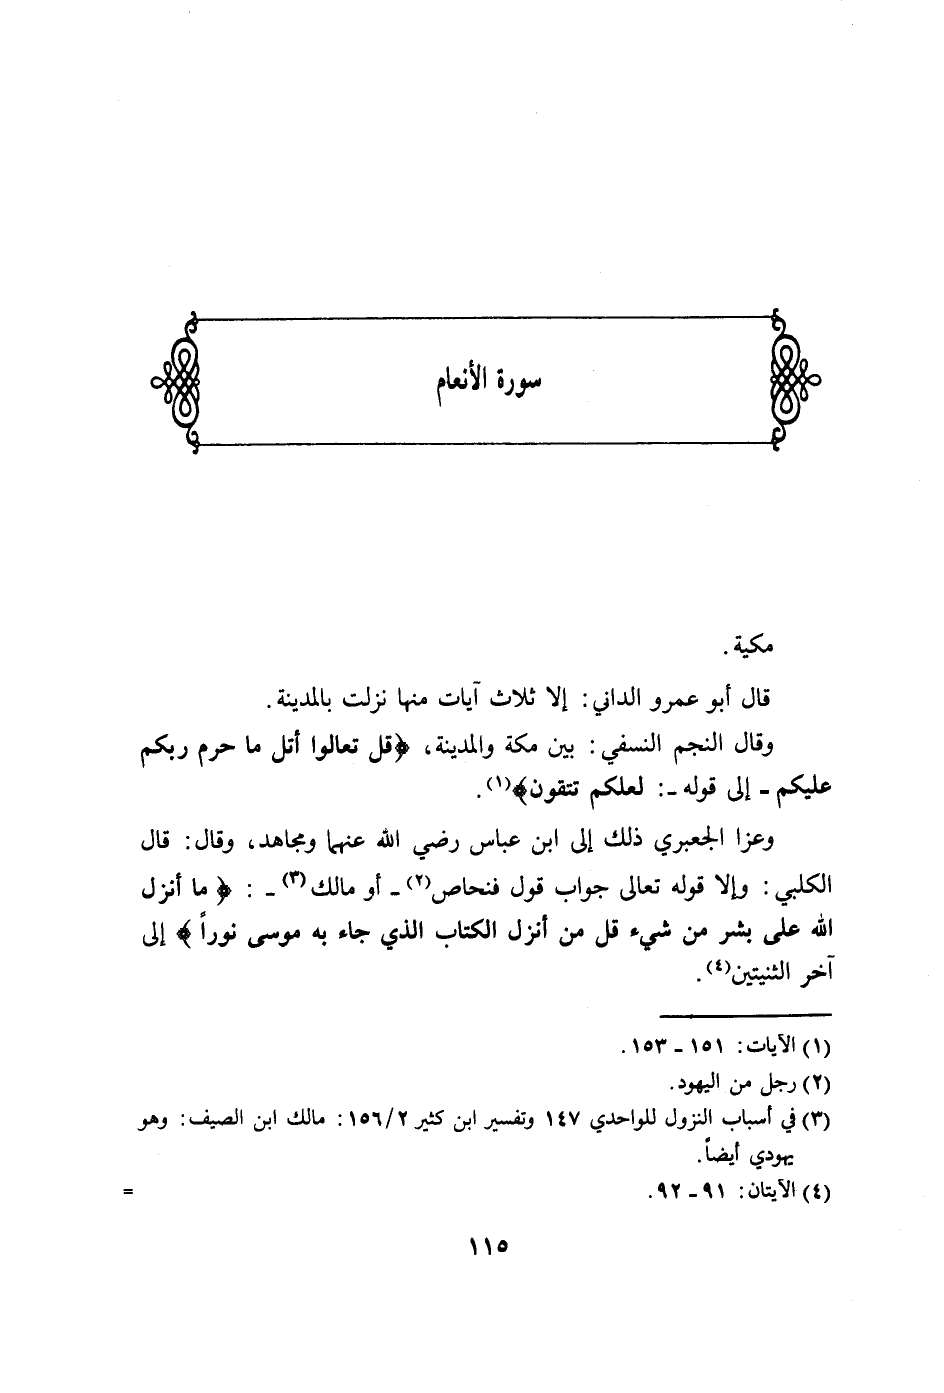 سورة الأنعام
مكية .
قال أبو عمرو الداني : إلا ثلاث آيات منها نزلت بالمدينة .
وقال النجم النسفي : بين مكة والمدينة ، ﴿قل تعالوا أتل ما حرم ربكم
عليكم ـ إلى قوله ـ : لعلكم تتقون﴾(١) .
وعزا الجعبري ذلك إلى ابن عباس رضي الله عنهما ومجاهد ، وقال : قال
الكلبي : وإلا قوله تعالى جواب قول فنحاص(٢) ـ أو مالك(٣) ـ : ﴿ ما أنزل
الله على بشر من شيء قل من أنزل الكتاب الذي جاء به موسى نوراً ﴾ إلى
آخر الثنيتين(٤) .
(١) الآيات : ١٥١ ـ ١٥٣ .
(٢) رجل من اليهود .
(٣) في أسباب النزول للواحدي ١٤٧ وتفسير ابن كثير ١٥٦/٢ : مالك ابن الصيف : وهو
يهودي أيضاً .
(٤) الآيتان : ٩١ ـ ٩٢ . =
١١٥